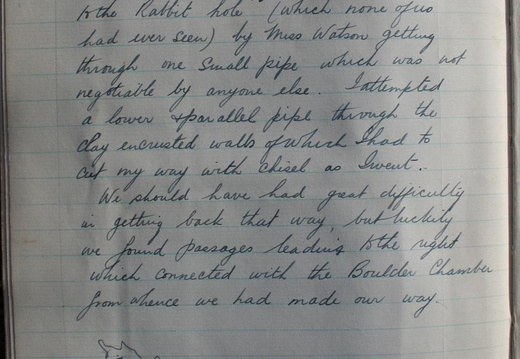 to the Rabbit hole (which none of us
had ever seen) by Miss Watson getting
through one small pipe which was not
negotiable by anyone else. I attempted
a lower & parallel pipe through the
clay encrusted walls of which I had to
cut my way with chisel as I went.
We should have had great difficulty
in getting back that way, but luckily
we found passages leading to the right
which connected with the Boulder Chamber
from whence we had made our way.